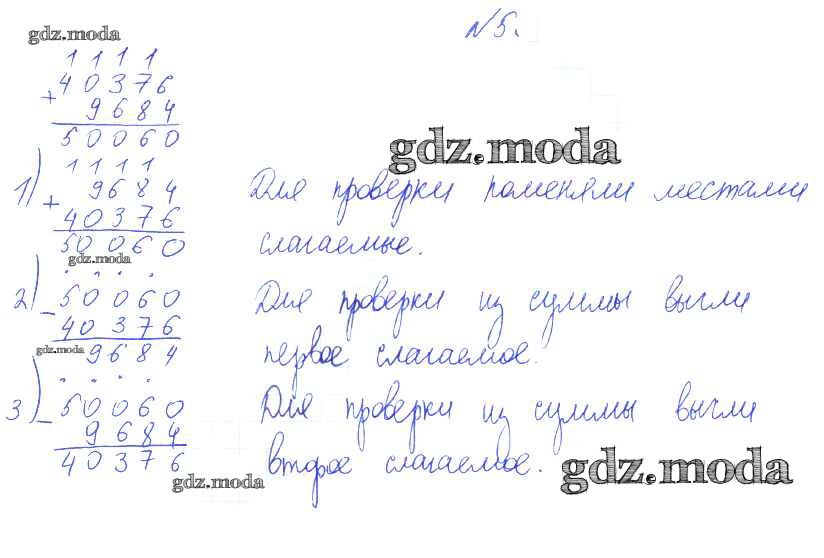 gdz.moda
N5.
1 1 1 1
40376
+ 9684
50060
gdz.moda
1 1 1 1
1) + 9684
40376
50060
gdz.moda
Для проверки поменяли местами
слагаемые.
2) - 50060
40376
gdz.moda 9684
Для проверки из суммы вычли
первое слагаемое.
3) - 50060
9684
40376
gdz.moda
Для проверки из суммы вычли
второе слагаемое.
gdz.moda